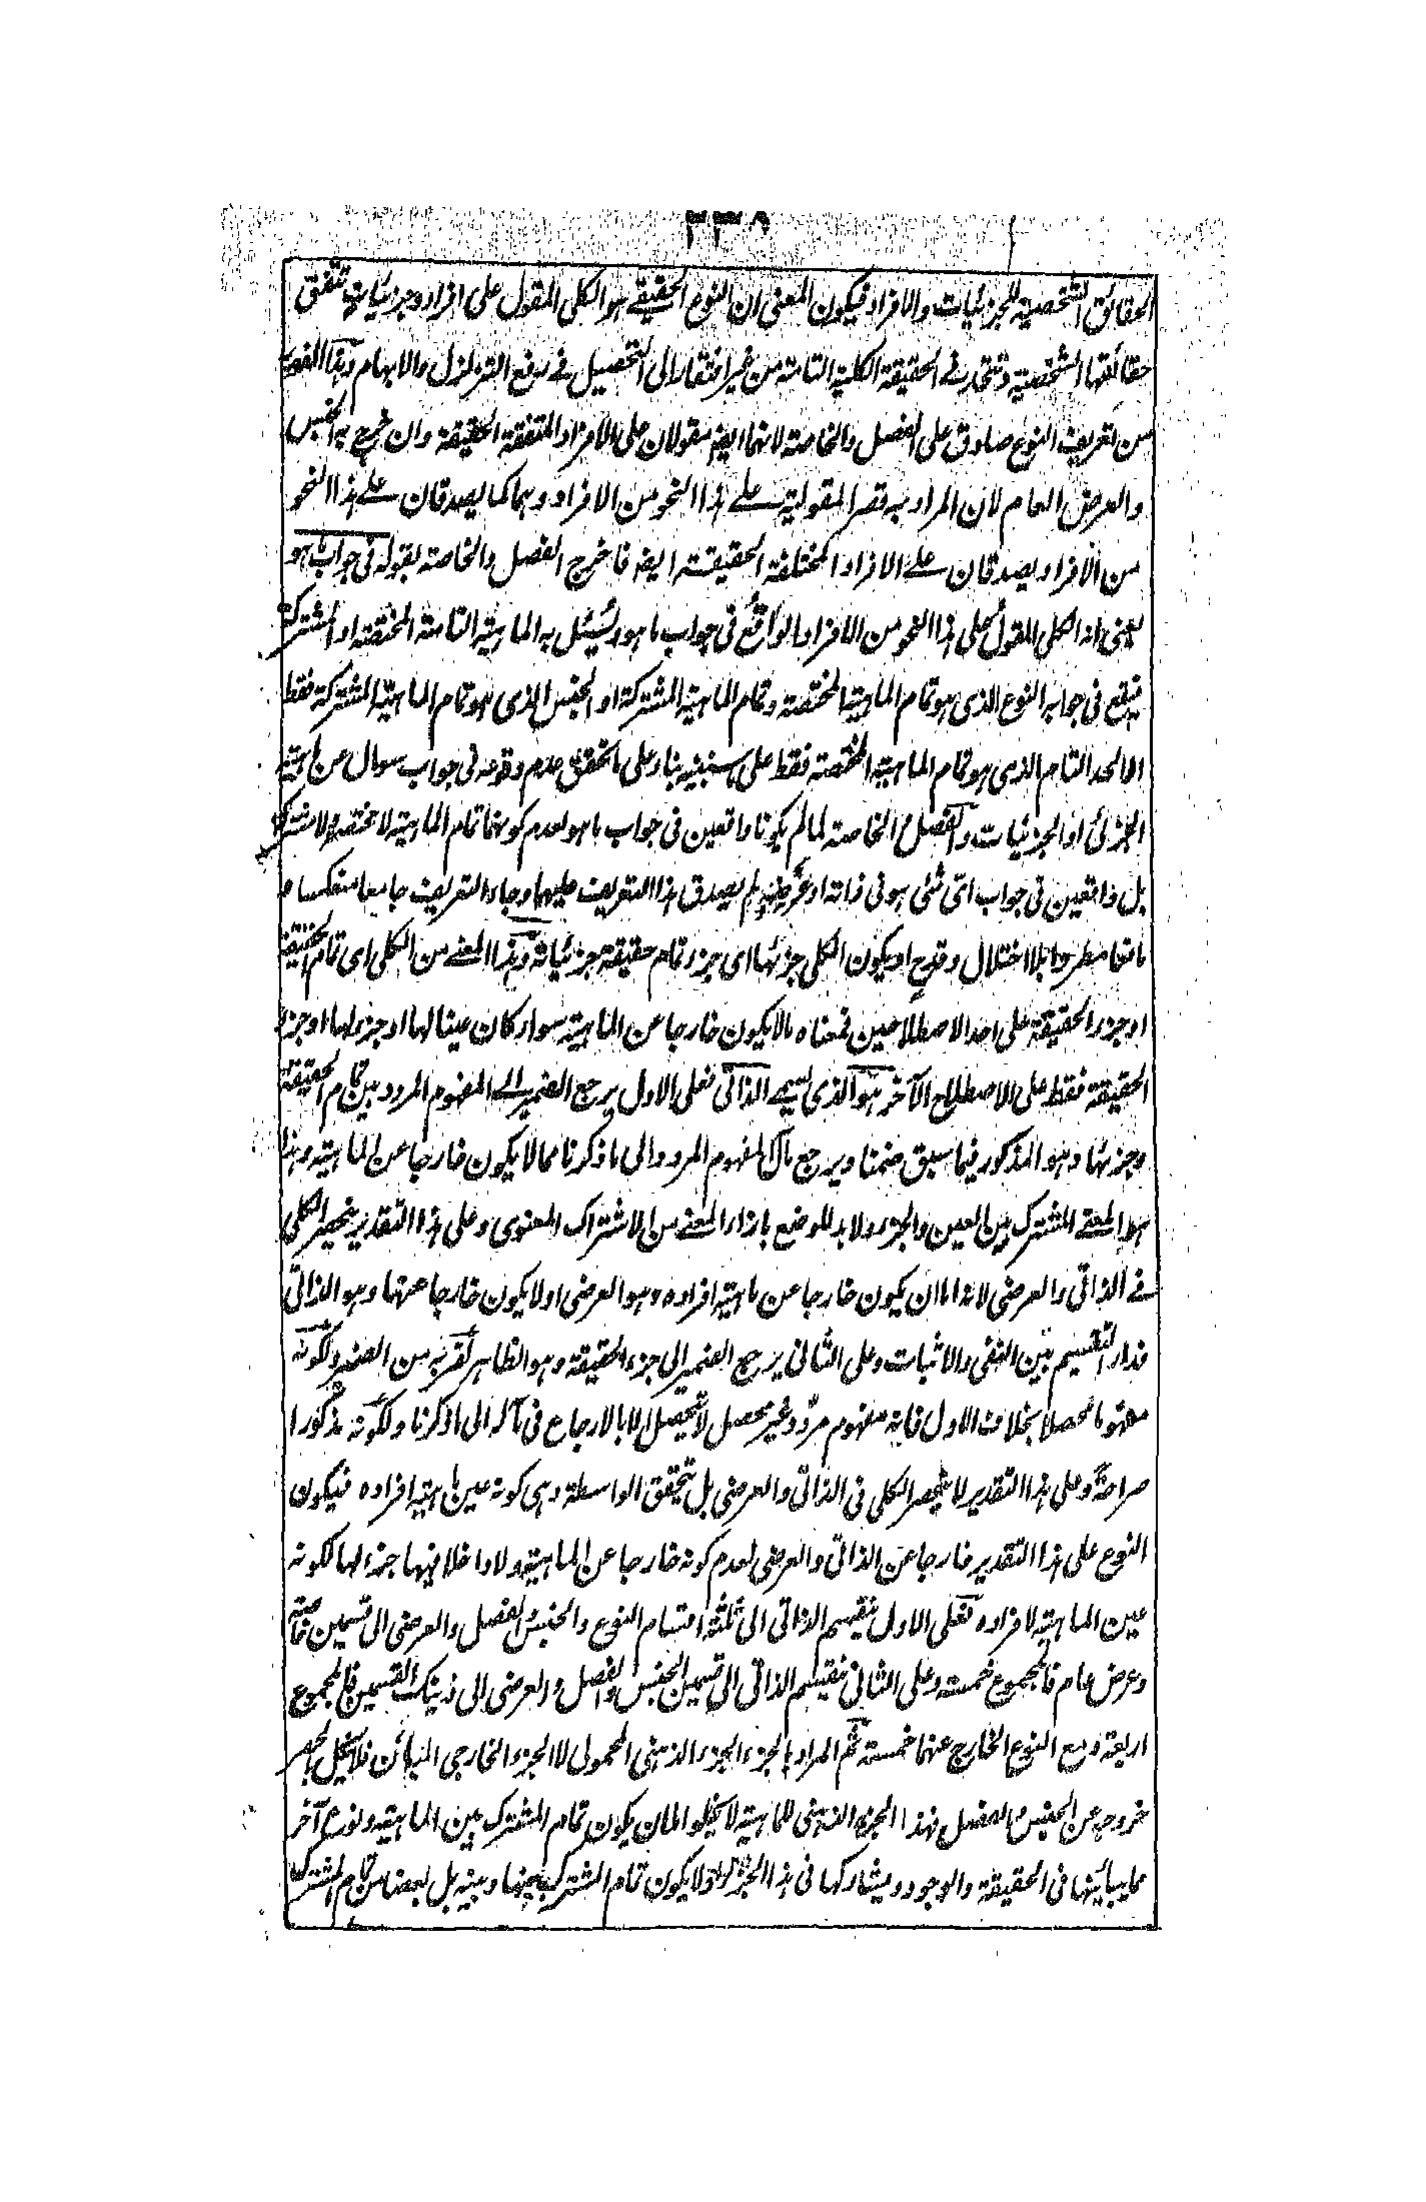 ٢٣٨
الحقائق الشخصية للجزئيات والافراد فيكون المعنى ان النوع الحقيقے هو الكلى المقول على افراد وجزئيات تتفق
حقائقها الشخصية وتتحد فے الحقيقة الكلية التامة من غير افتقار الى التحصيل فے رفع التزلزل والابهام وهذا القدر
من تعريف النوع صادق على الفصل والخاصة لانهما ايضه مقولان على الافراد المتفقة الحقيقة وان خرج به الجنس
والعرض العام لان المراد به قصر المقولية علے هذا النحو من الافراد وهما كما يصدقان علے هذا النحو
من الافراد يصدقان علے الافراد المختلفة الحقيقة ايضه فاخرج الفصل والخاصة بقوله فى جواب ما هو
يعنى انه الكلى المقول على هذا النحو من الافراد الواقع فى جواب ما هو ويسئل به الماهية التامة المختصة او المشتركة
فيقع فى جوابه النوع الذى هو تمام الماهية المختصة وتمام الماهية المشتركة او الجنس الذى هو تمام الماهية المشتركة فقط
الا الحد التام الذى هو تمام الماهية المختصة فقط على بناء على ما تحقق عدم وقوعه فى جواب سوال عن ماهية
الجزئى او الجزئيات والفصل والخاصة لما لم يكونا واقعين فى جواب ما هو لعدم كونهما تمام الماهية لا مختصة ولا مشتركة
بل واقعين فى جواب اى شئ هو فى ذاته او عرضه لم يصدق هذا التعريف عليهما وجاء التعريف جامعا منعكسا
مانعا مطردا بلا اختلال وقدح او يكون الكلى جزئها اى جزء تمام حقيقة جزئياته وهذا المعنے من الكلى اى تمام الحقيقة
او جزء الحقيقة على احد الاصطلاحين فمعناه ما لا يكون خارجا عن الماهية سواء كان عينا لها او جزء لها او جزء
الحقيقة فقط على الاصطلاح الآخر هو الذى يسمے الذاتى فعلى الاول يرجع الضمير الے المفهوم المردد بين تمام الحقيقة
وجزئها وهو المذكور فيما سبق ضمنا ويرجع مآل المفهوم المردد الى ما ذكرنا مما لا يكون خارجا عن الماهية وهذا
هو المعنے المشترك بين العين والجزء ولا بد للوضع بازاء المعنے من الاشتراك المعنوى وعلى هذا التقدير ينحصر الكلى
فے الذاتى والعرضى لانه اما ان يكون خارجا عن ماهية افراده وهو العرضى او لا يكون خارجا عنها وهو الذاتى
فدار التقسيم بين النفى والاثبات وعلى الثانى يرجع الضمير الى جزء الحقيقة وهو الظاهر لقربه من الضمير ولكونه
مفهوما محصلا بخلاف الاول فانه مفهوم مردد وغير محصل لا يتحصل الا بالارجاع فى مآله الى ما ذكرنا ولكونه مذكورا
صراحة وعلى هذا التقدير لا ينحصر الكلى فى الذاتى والعرضى بل يتحقق الواسطة وهى كونه عين ماهية افراده فيكون
النوع على هذا التقدير خارجا عن الذاتى والعرضى لعدم كونه خارجا عن الماهية ولا داخلا فيها جزء لها لكونه
عين الماهية لافراده فعلى الاول ينقسم الذاتى الى ثلثة اقسام النوع والجنس والفصل والعرضى الى قسمين خاصة
وعرض عام فالمجموع خمسة وعلى الثانى ينقسم الذاتى الى قسمين الجنس والفصل والعرضى الى ذينك القسمين فالمجموع
اربعة ومع النوع الخارج عنهما خمسة ثم المراد بالجزء الجزء الذهنى المحمولى لا الجزء الخارجى المبائن فلا يختل الحصر
خروجه عن الجنس والفصل فهذا الجزء الذهنى للماهية لا يخلوا اما ان يكون تمام المشترك بين الماهية ونوع آخر
مما يبائنها فى الحقيقة والوجود ويشاركها فى هذا الجزء اولا يكون تمام المشترك بينها وبينه بل بعضا من تمام المشترك